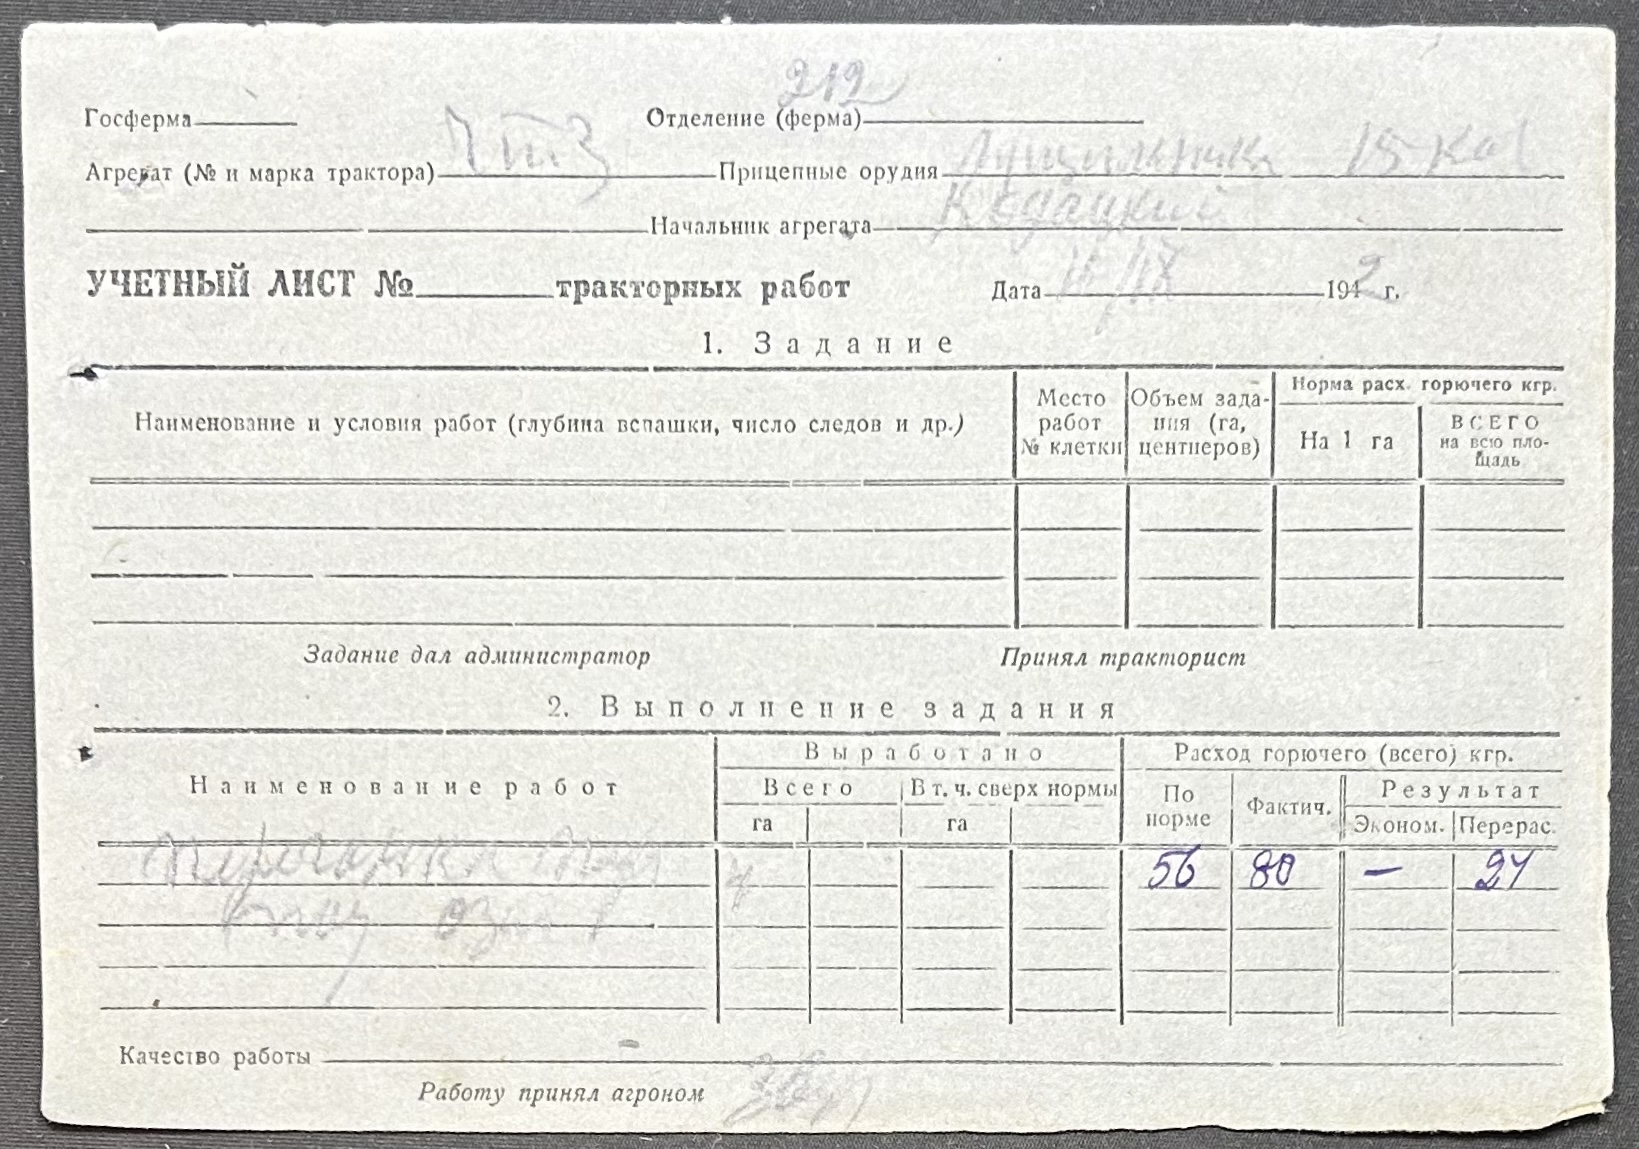 212
Госферма Отделение (ферма)
Агрегат (№ и марка трактора) ЧТЗ Прицепные орудия Лущильник 15-ка
Начальник агрегата
УЧЕТНЫЙ ЛИСТ № тракторных работ Дата 194 2 г.
1. Задание
Наименование и условия работ (глубина вспашки, число следов и др.)
Место работ № клетки
Объем зада-
ния (га,
центнеров)
Норма расх. горючего кгр.
На 1 га
ВСЕГО
на всю пло-
щадь
Задание дал администратор Принял тракторист
2. Выполнение задания
Наименование работ
Выработано
Всего
га
В т. ч. сверх нормы
га
Расход горючего (всего) кгр.
По
норме
Фактич.
Результат
Эконом. Перерас.
56 80 — 24
Качество работы
Работу принял агроном